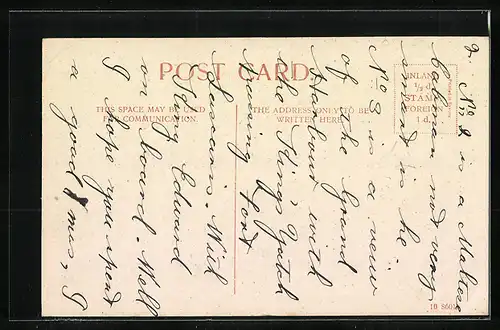 POST CARD.
THIS SPACE MAY BE USED
FOR COMMUNICATION.
THE ADDRESS ONLY TO BE
WRITTEN HERE.
INLAND
½ d
STAMP
FOREIGN
1 d.
10 860
2. No 2 is a Maltese
cabman and very
smart is he
No 3 is a view
of the Grand
Harbour with
the King's Yatch
fort
Lascaris. With
King Edward
on board. Well
I hope you spent
a good Xmas, I